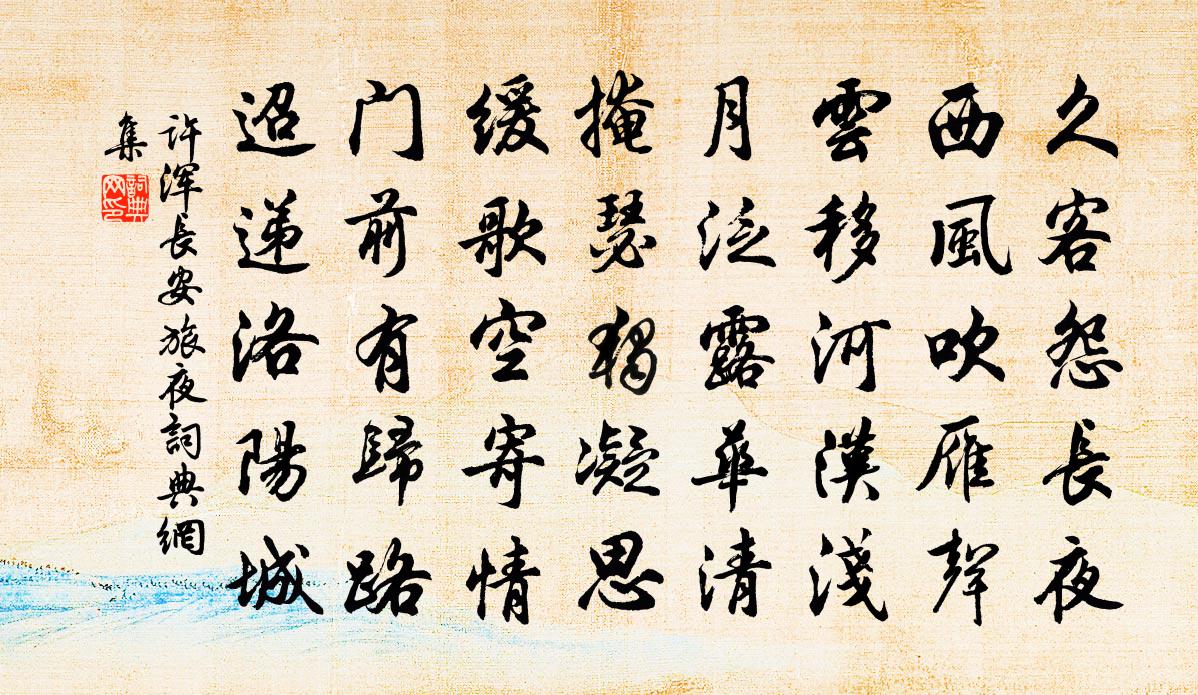 久客怨長夜
西風吹雁聲
雲移河漢淺
月泛露華清
掩瑟獨凝思
緩歌空寄情
門前有歸路
迢遞洛陽城
許渾長安旅夜詞典網
集
詞典
网印